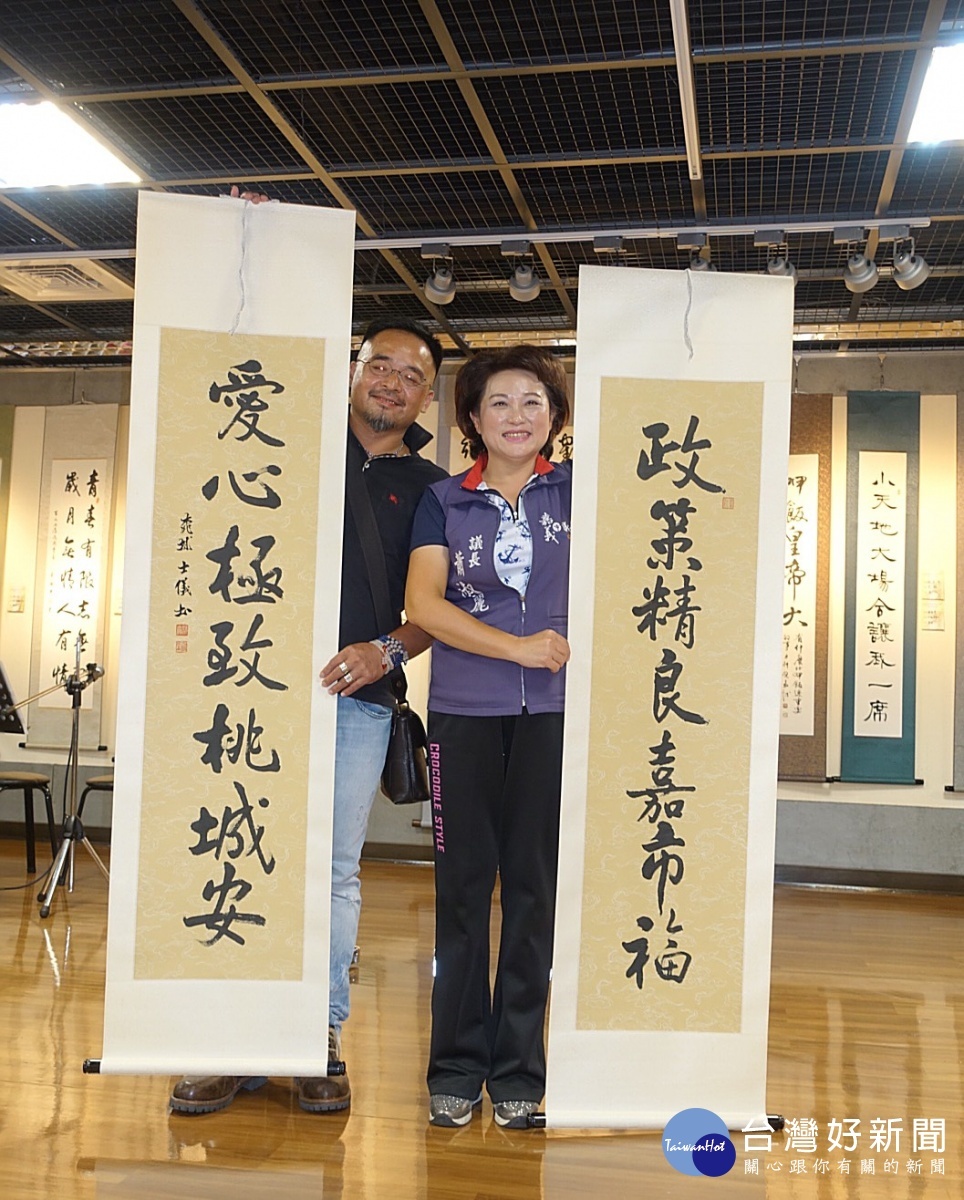 政策精良嘉市福
愛心極致桃城安
士儀書
嘉義市
議長
蕭淑麗
CROCODILE STYLE
小天地大場合讓我一席
坤飯皇帝大
青春有限志無
歲月無情人有情
TaiwanHot
台灣好新聞
關心跟你有關的新聞